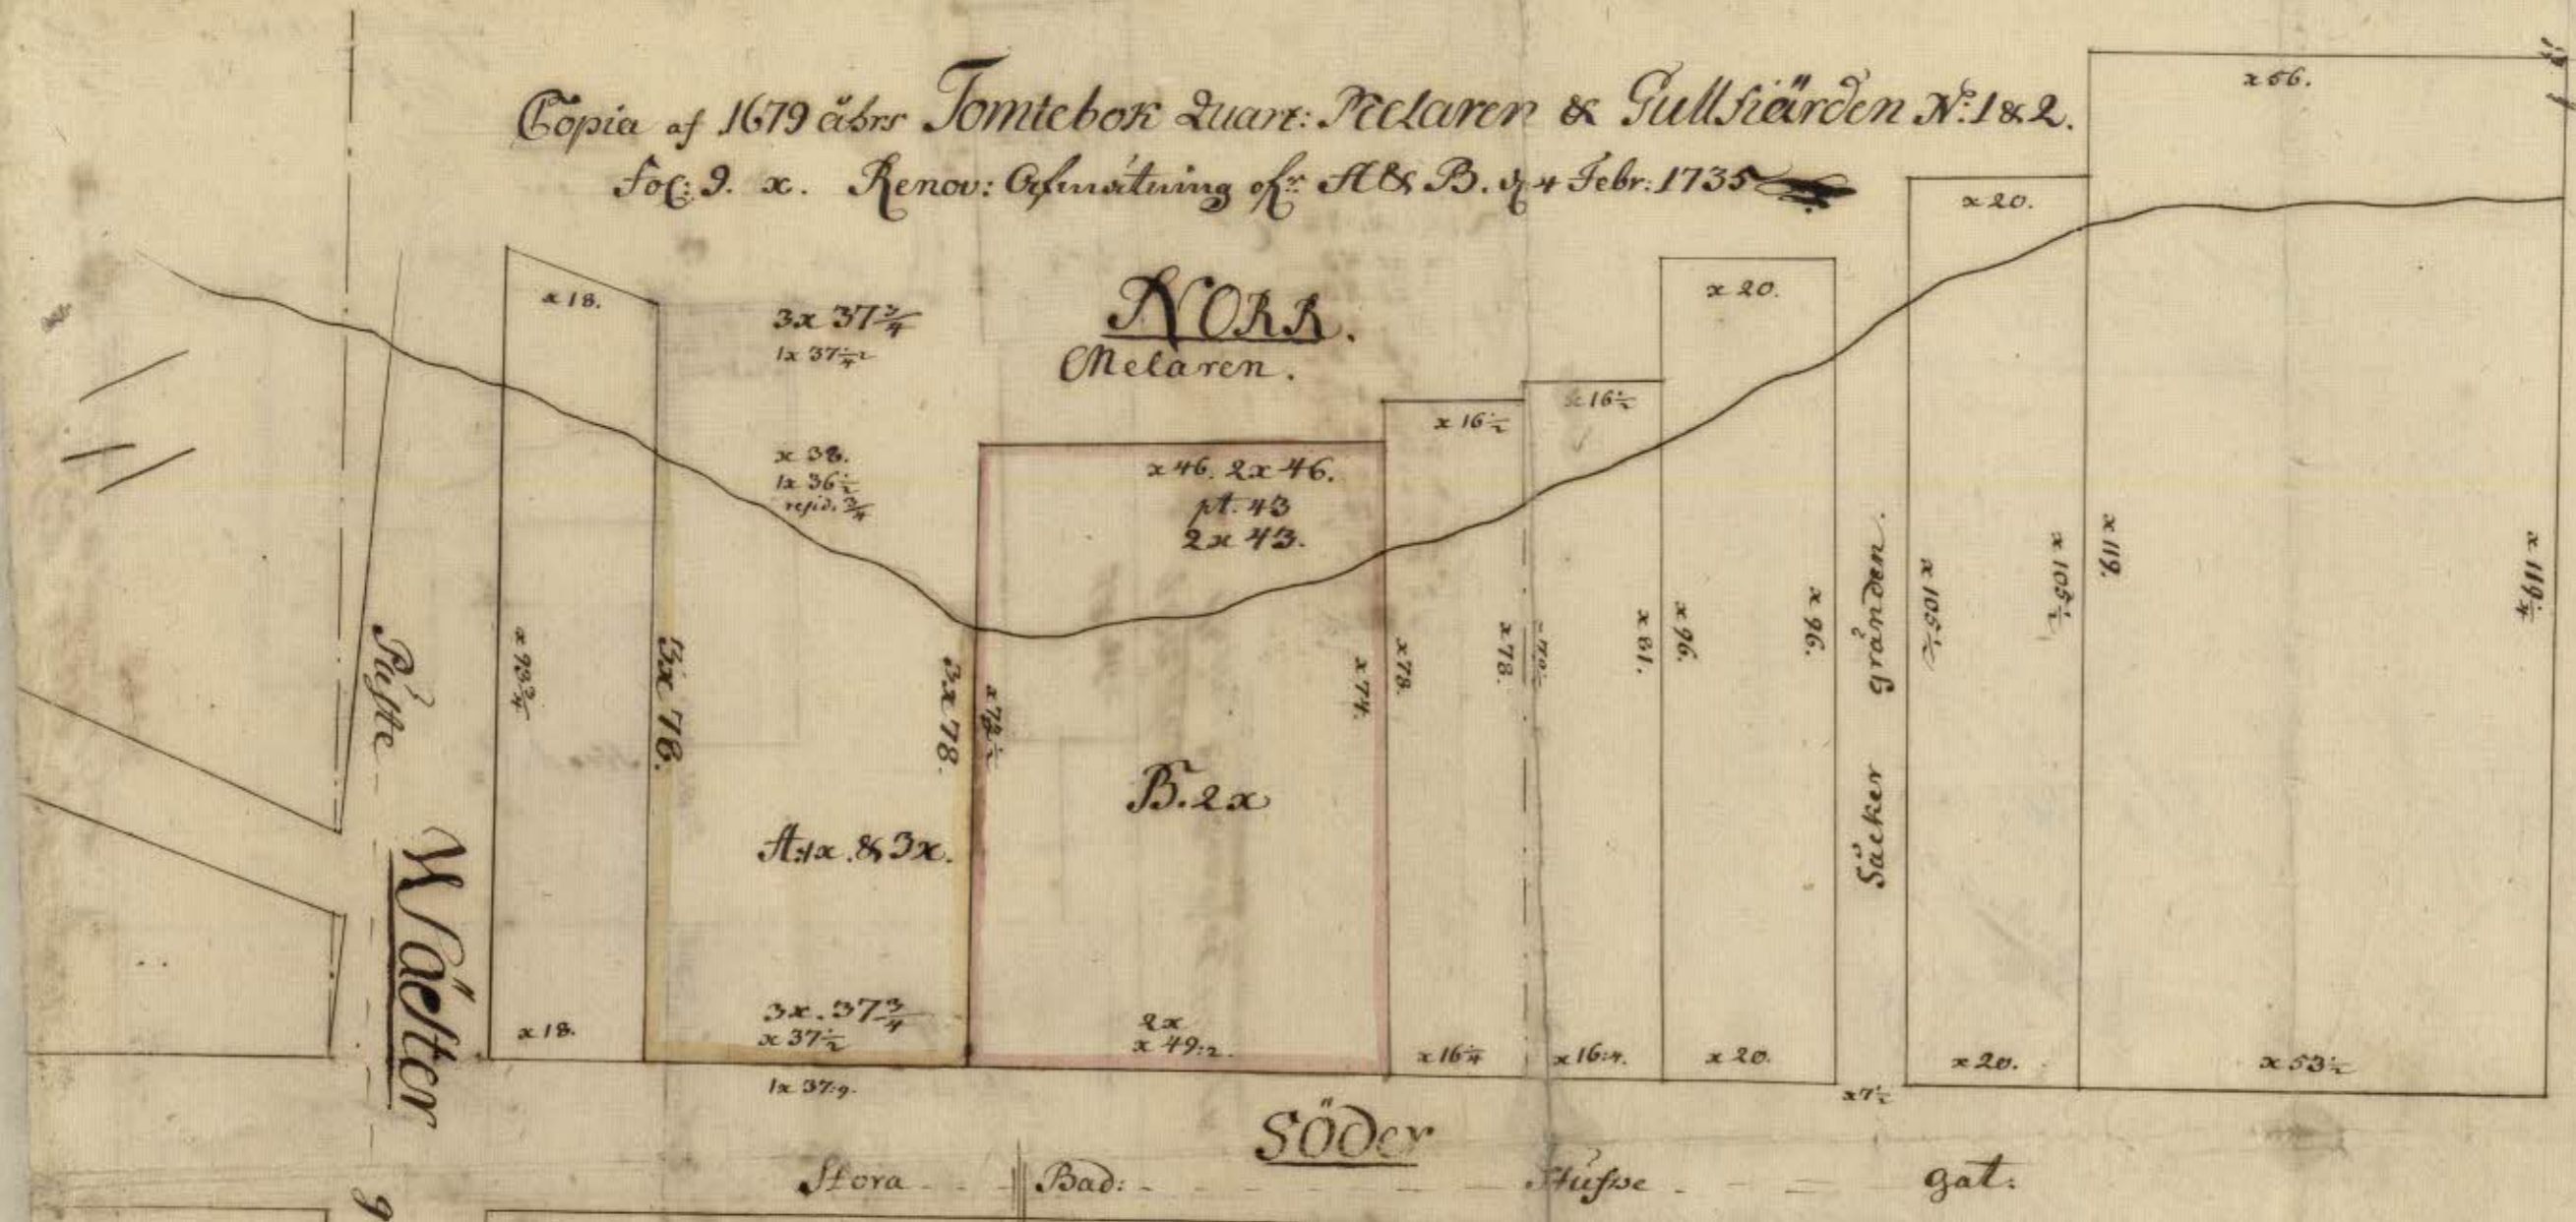 Copia af 1679 åhrs Tomtebok Quart: Melaren & Gullfiärden N:º 1 & 2.
Fol: 9. x. Renov: Afmätning öfr A & B. d 4 Febr: 1735
x 56.
x 20.
x 20.
x 18.
3x 37 3/4
1x 37 1/2
NORR.
Melaren.
x 16 1/2
x 16 1/2
x 38.
1x 36 1/2
resid. 3/4
x 46. 2x 46.
pt. 43
2x 43.
x 93 3/4
3x 78.
3x 78.
x 74.
x 78.
x 78.
x 81.
x 96.
x 96.
Säcker gränden.
x 105 1/2
x 105 1/2
x 119.
x 119 1/4
Påfte
Wäster
g
A: 1x. & 3x.
B. 2x
x 18.
3x. 37 3/4
x 37 1/2
1x 37:9.
2x
x 49:2.
x 16 1/4
x 16:4.
x 20.
x 7 1/2
x 20.
x 53 1/2
SÖDer
Stora Bad: Stufwe gat: